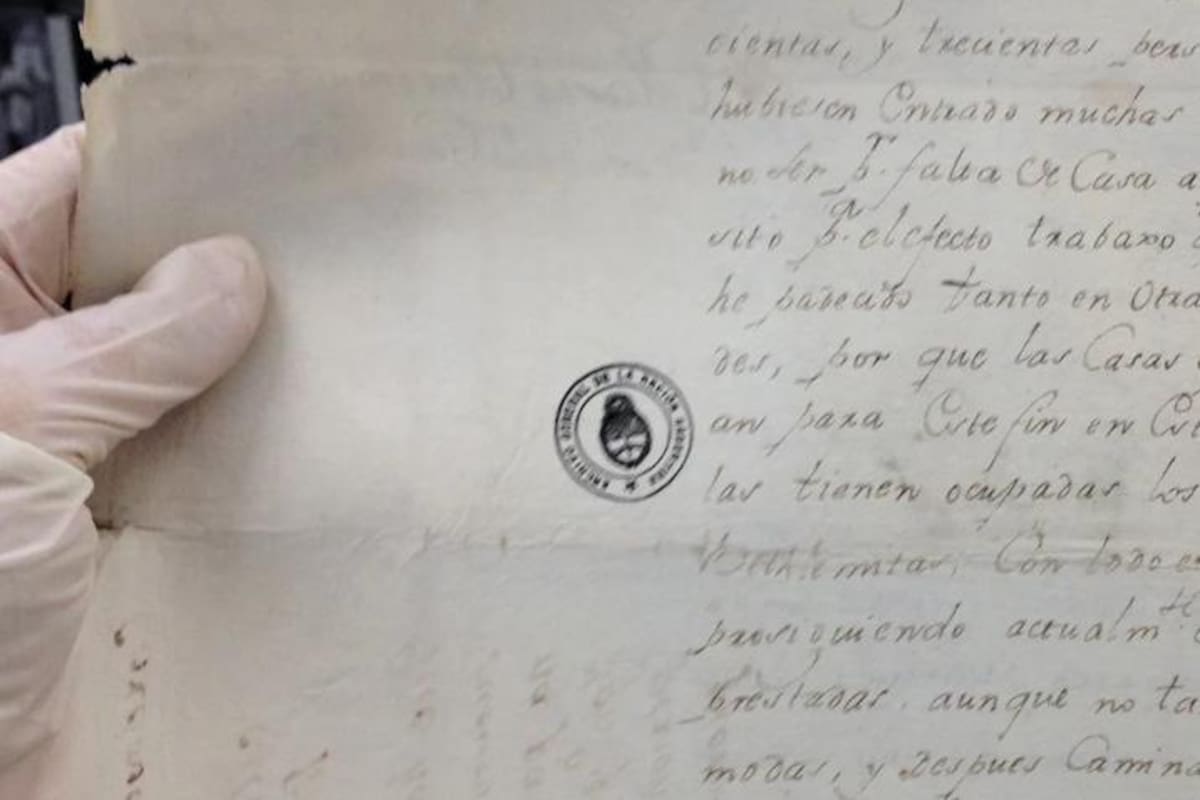 cientas, y trecientas pers
hubiesen Entrado muchas
no ser pr. falta de Casa a
sito pa. el efecto trabaxo
he padecido tanto en Otra
des, por que las Casas
an para Este fin en Est
las tienen ocupadas los
Bethlemitas, Con todo es
prosiguiendo actualmte
prestadas. aunque no ta
modas, y despues Camina
ARCHIVO GENERAL DE LA NACIÓN ARGENTINA